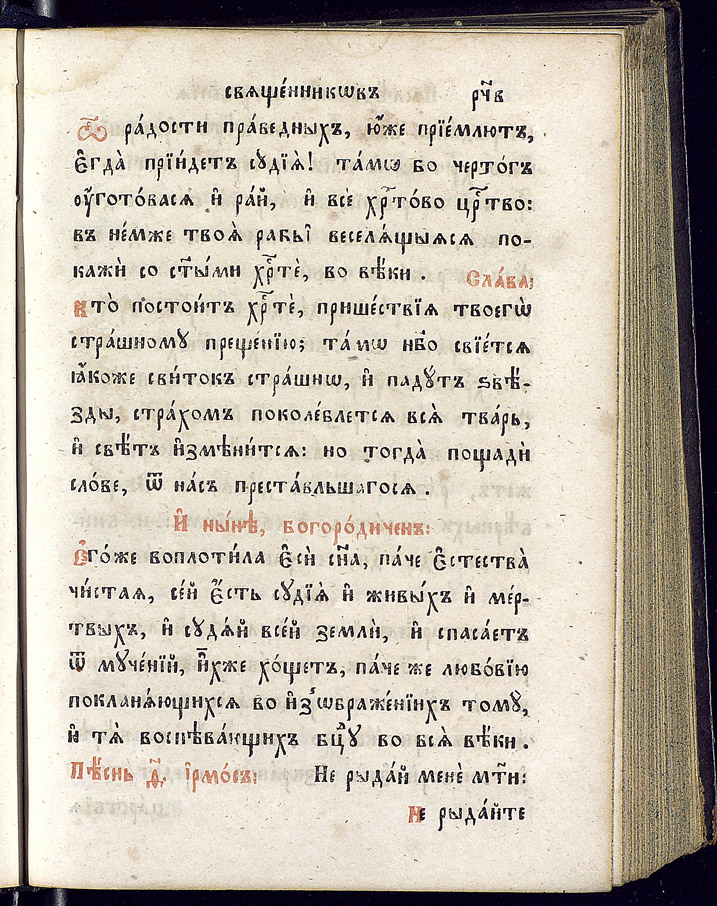 свѧще́нникѡвъ рч҃в
Ѿ ра́дости пра́ведныхъ, ю҆́же прїе́млютъ,
є҆гда̀ прїи́детъ сꙋдїѧ̀! та́мѡ бо черто́гъ
ᲂу҆гото́васѧ и҆ ра́й, и҆ всѐ хрⷭ҇то́во црⷭ҇тво:
въ не́мже твоѧ̑ рабы̑ веселѧ́щыѧсѧ по-
кажѝ со ст҃ы́ми хрⷭ҇тѐ, во вѣ́ки. Сла́ва;
Кто̀ постои́тъ хрⷭ҇тѐ, прише́ствїѧ твоегѡ̀
стра́шномꙋ преще́нїю; та́мѡ нб҃о свїе́тсѧ
ꙗ҆́коже сви́токъ стра́шнѡ, и҆ падꙋ́тъ ѕвѣ́-
зды, стра́хомъ поколе́блетсѧ всѧ̀ тва́рь,
и҆ свѣ́тъ и҆змѣни́тсѧ: но тогда̀ пощадѝ
сло́ве, ѿ на́съ преста́вльшагосѧ.
И҆ ны́нѣ, богоро́диченъ:
Є҆го́же воплоти́ла є҆сѝ сн҃а, па́че є҆стества̀
чи́стаѧ, се́й є҆́сть сꙋдїѧ̀ и҆ живы́хъ и҆ ме́р-
твыхъ, и҆ сꙋдѧ́й все́й землѝ, и҆ спаса́етъ
ѿ мꙋче́нїй, и҆̀хже хо́щетъ, па́че же любо́вїю
покланѧ́ющихсѧ во и҆з̾ѡбраже́нїихъ томꙋ̀,
и҆ тѧ̀ воспѣва́ющихъ бц҃ꙋ во всѧ̑ вѣ́ки.
Пѣ́снь д҃. і҆рмо́съ: Не рыда́й менѐ мт҃и:
Не рыда́йте